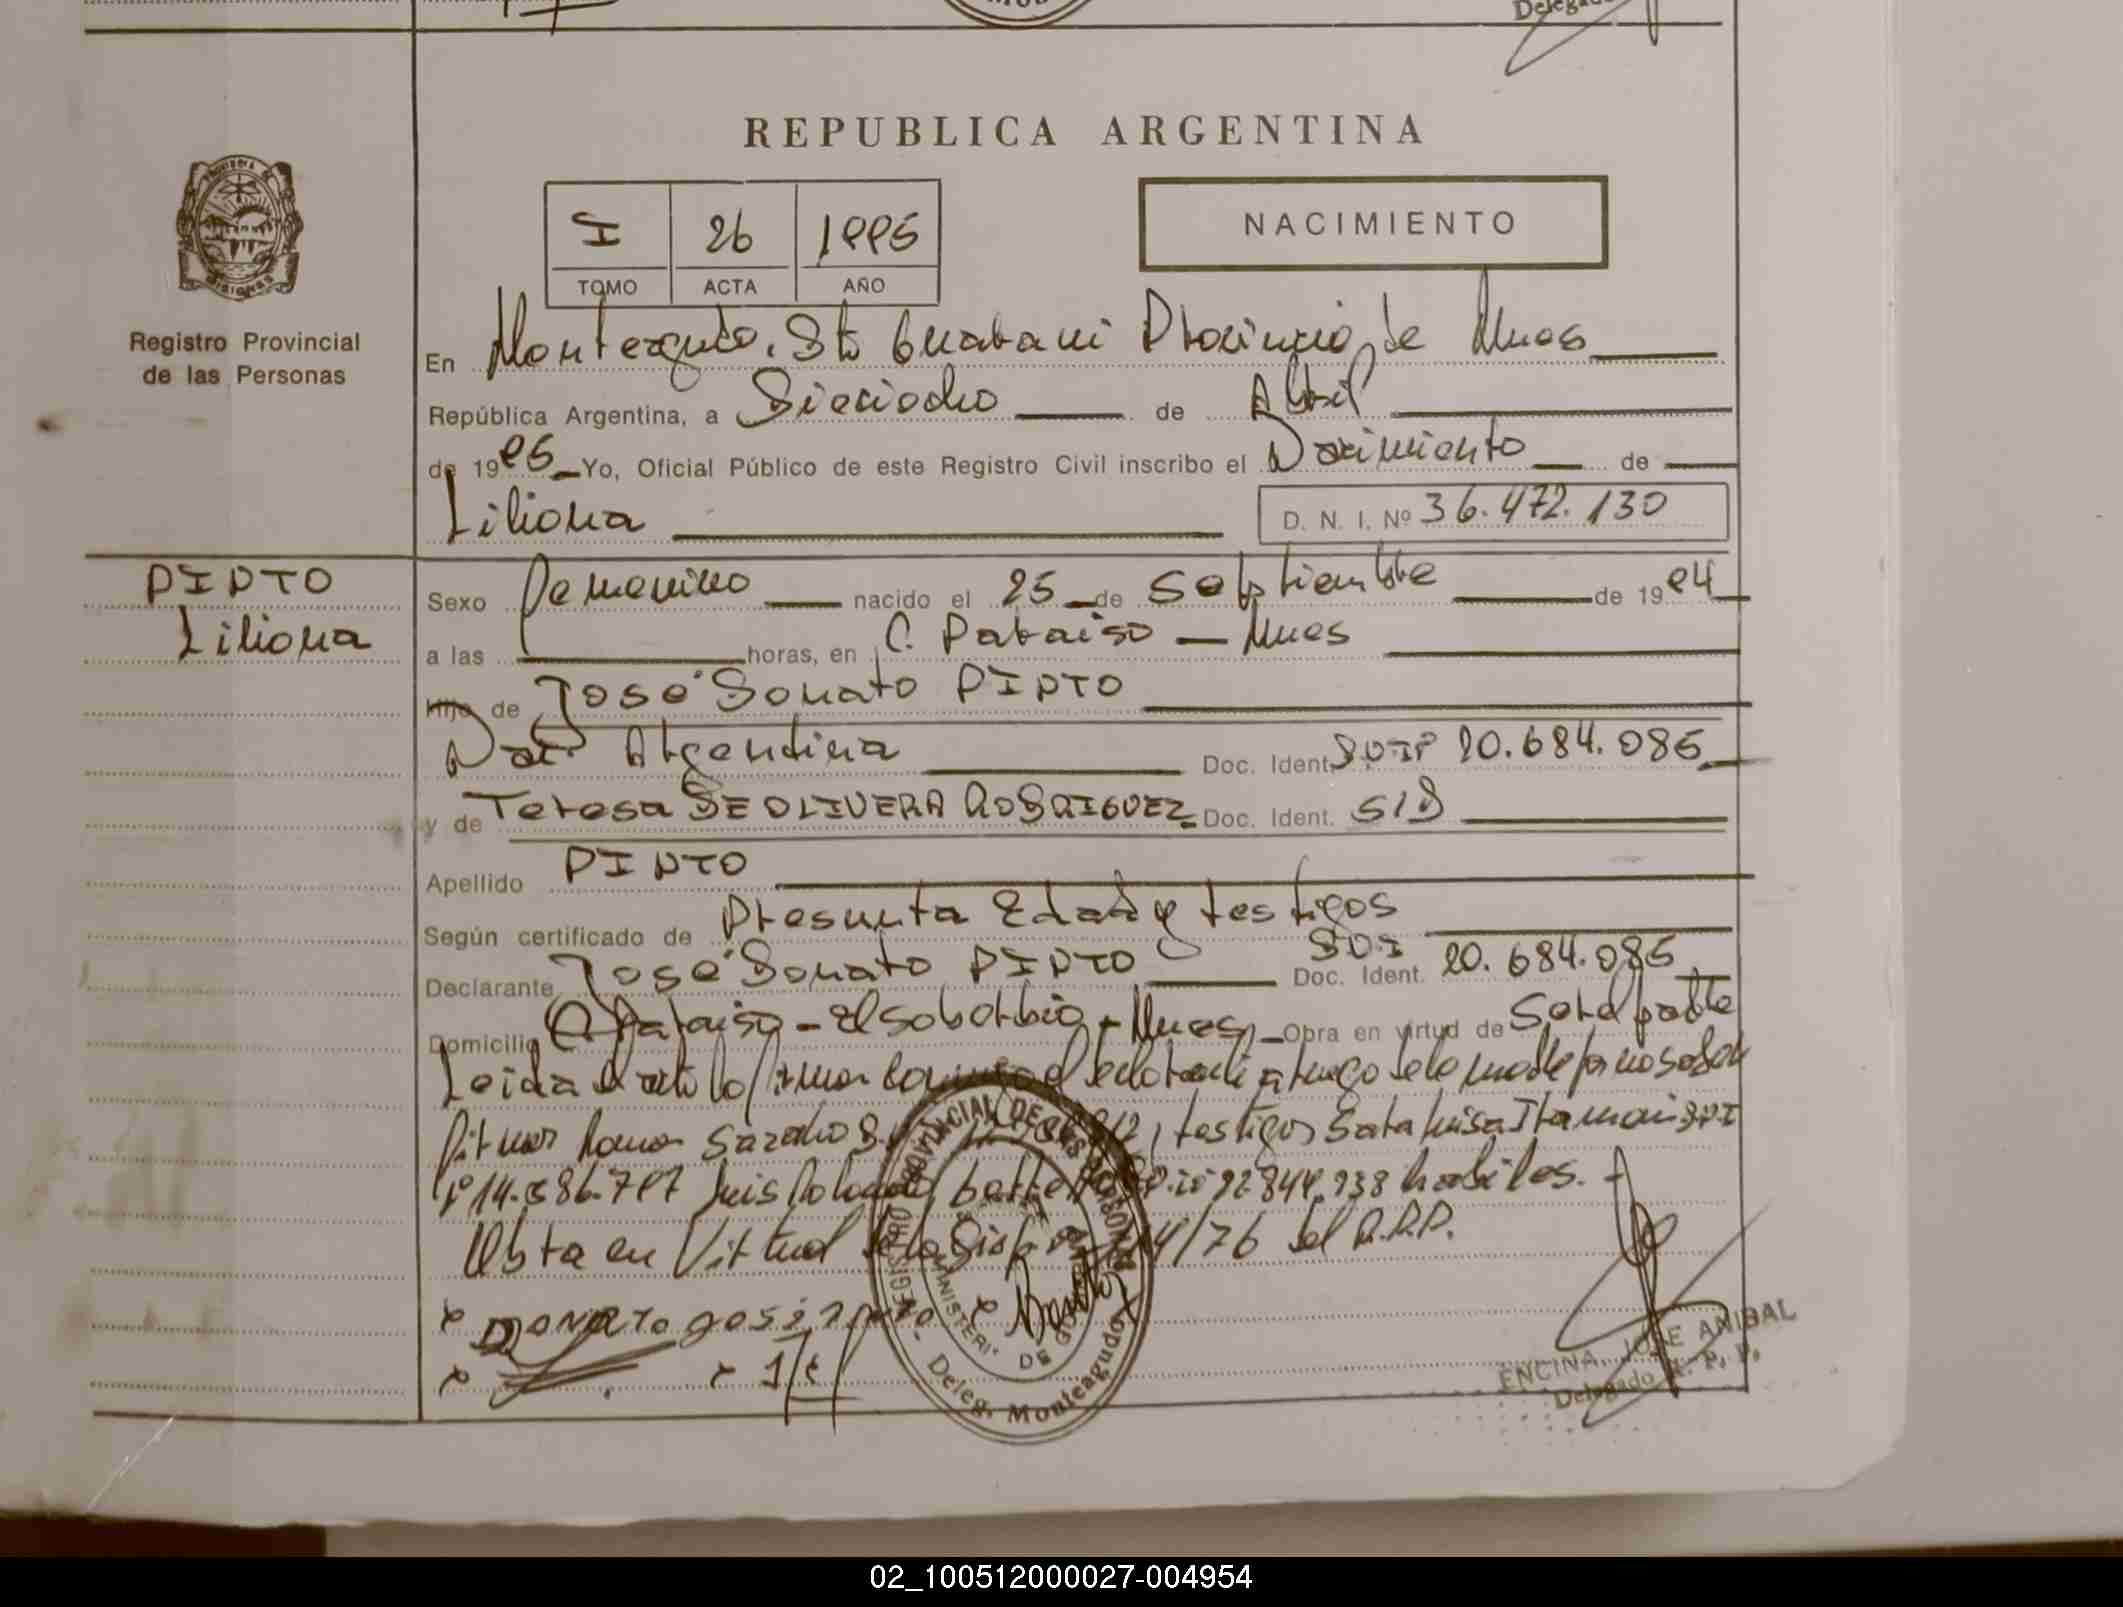 REPUBLICA ARGENTINA
I 26 1995
TOMO ACTA AÑO
NACIMIENTO
Registro Provincial
de las Personas
En Monteagudo, Dto Guarani Provincia de Mnes
República Argentina, a Dieciocho de Abril
de 1995 Yo, Oficial Público de este Registro Civil inscribo el Nacimiento de
Liliana D. N. I. Nº 36.472.130
PINTO
Liliana
Sexo Femenino nacido el 25 de Setiembre de 19
a las horas, en C. Paraiso - Mnes
Hijo de José Donato PINTO
Nac. Argentina Doc. Ident. 20.684.085
y de Teresa DE OLIVERA RODRIGUEZ Doc. Ident. S/D
Apellido PINTO
Según certificado de Presunta Edad y testigos
Declarante José Donato PINTO Doc. Ident. DNI 20.684.085
Domicilio C. Paraiso - El Soberbio - Mnes Obra en virtud de Ser el padre
Leida el acta la firman el declarante a ruego de la madre por no saber
firmar testigos Sara Luisa DNI
Luis habiles.
en Virtud de la 14/76 del R.P.P.
DONATO JOSE PINTO
REGISTRO PROVINCIAL DE LAS PERSONAS
MINISTERIO DE GOBIERNO
Deleg. Monteagudo
ENCINA, JOSE ANIBAL
Delegado R. P. P.
02_100512000027-004954